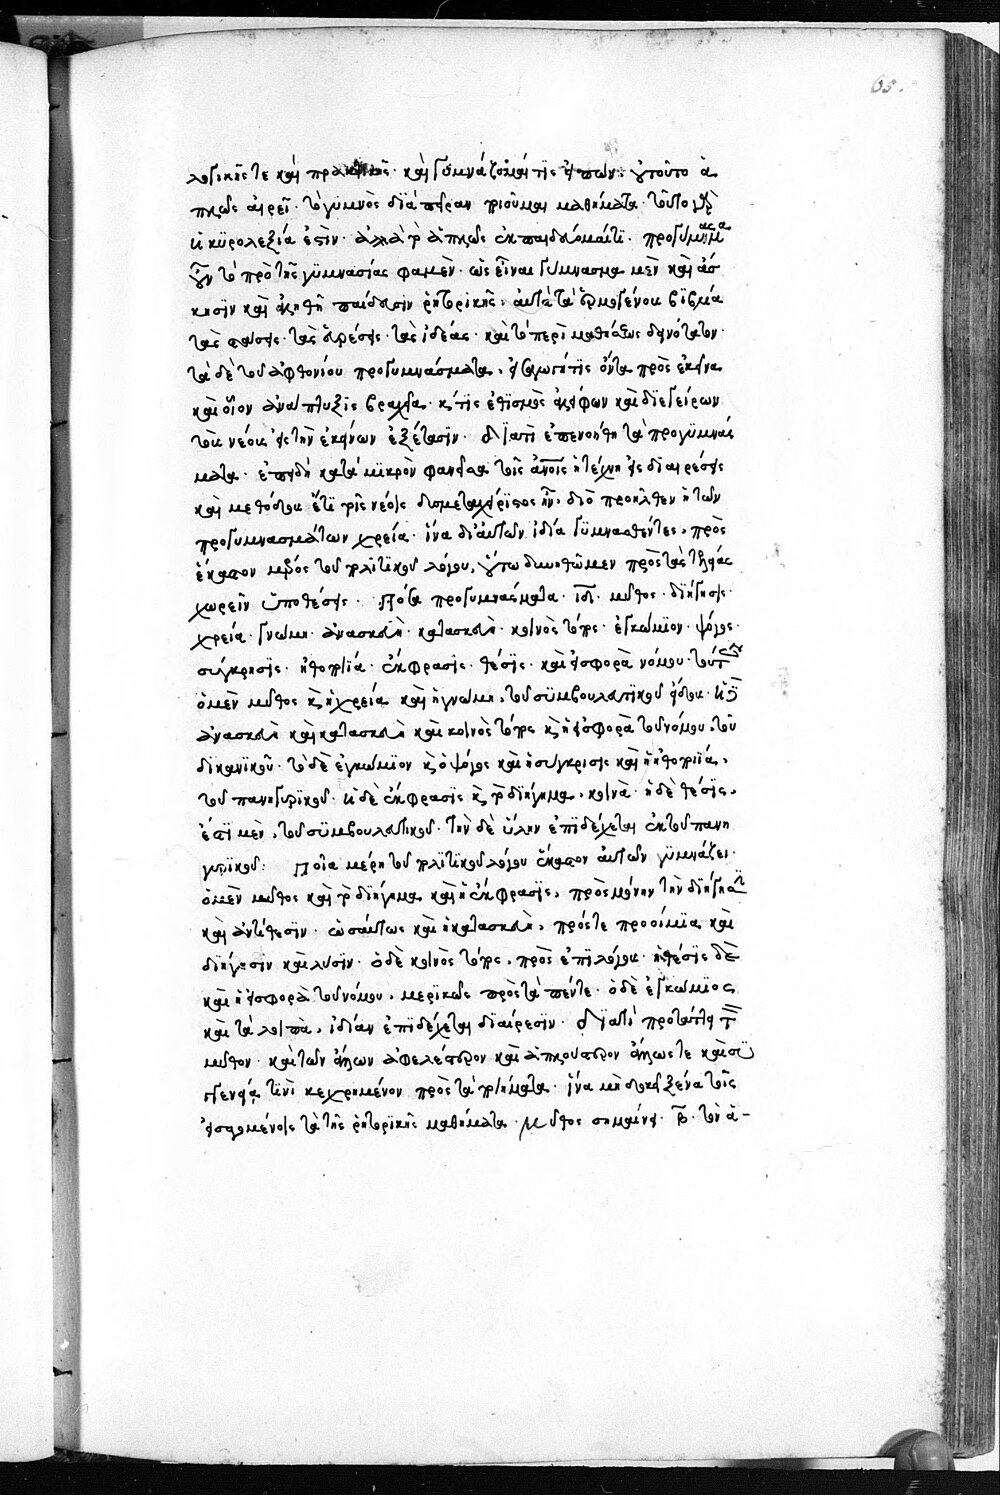 65.
λογικῆς τε καὶ πρακτικῆς· καὶ γυμνάζομαί τις εἰπών· οὐ τοῦτο ἁ
πλῶς αἱρεῖ· τὸ γυμνὸς διὰ πεῖραν ποιοῦμαι μαθήματα· τοῦτο γὰρ
ἡ κυρολεξία ἐστὶν· ἀλλὰ τὸ ἁπλῶς ἐκπαιδεύομαί τι· προγύμνασμα
οὖν τὸ πρὸ τῆς γυμνασίας φαμὲν· ὡς εἶναι γύμνασμα μὲν καὶ ἄσ
κησιν καὶ ἀληθῆ παίδευσιν ῥητορικῆς· αὐτὰ τὰ ἑρμογένους βιβλία
τὰς στάσεις· τὰς εὑρέσεις· τὰς ἰδέας· καὶ τὸ περὶ μεθόδου δεινότητος·
τὰ δὲ τοῦ ἀφθονίου προγυμνάσματα, εἰσαγωγή τις ὄντα πρὸς ἐκεῖνα
καὶ οἷον ἀνάπτυξις βραχεῖα· καί τις ἐθισμὸς ἀλείφων καὶ διεγείρων
τοὺς νέους εἰς τὴν ἐκείνων ἐξέτασιν· Διατί ἐπενοήθη τὰ προγυμνάσ
ματα· ἐπειδὴ κατὰ μικρὸν φανεῖσα τοῖς ἀνοις ἡ τέχνη εἰς διαιρέσεις
καὶ μεθόδους ἔτι τοῖς νέοις δυσμεταχείριστος ἦν, διὸ προῆλθεν ἡ τῶν
προγυμνασμάτων χρεία· ἵνα δι' αὐτῶν ἰδία γυμνασθέντες, πρὸς
ἕκαστον μέρος τοῦ πολιτικοῦ λόγου, οὕτω δυνηθῶμεν πρὸς τὰς τελείας
χωρεῖν ὑποθέσεις· Πόσα προγυμνάσματα· ιδ· μῦθος· διήγησις·
χρεία· γνώμη· ἀνασκευὴ· κατασκευὴ· κοινὸς τόπος· ἐγκώμιον· ψόγος·
σύγκρισις· ἠθοποιία· ἔκφρασις· θέσις· καὶ εἰσφορὰ νόμου· τούτων
ὁ μὲν μῦθος καὶ ἡ χρεία καὶ ἡ γνώμη, τοῦ συμβουλευτικοῦ εἴδους· ἡ δὲ
ἀνασκευὴ καὶ κατασκευὴ καὶ κοινὸς τόπος καὶ ἡ εἰσφορὰ τοῦ νόμου, τοῦ
δικανικοῦ· τὸ δὲ ἐγκώμιον καὶ ὁ ψόγος καὶ ἡ σύγκρισις καὶ ἡ ἠθοποιία,
τοῦ πανηγυρικοῦ· ἡ δὲ ἔκφρασις καὶ τὸ διήγημα, κοινὰ· ἡ δὲ θέσις,
ἐστὶ μὲν, τοῦ συμβουλευτικοῦ· τὴν δὲ ὕλην ἐπιδέχεται ἐκ τοῦ πανη
γυρικοῦ: Ποῖα μέρη τοῦ πολιτικοῦ λόγου ἕκαστον αὐτῶν γυμνάζει·
ὁ μὲν μῦθος καὶ τὸ διήγημα καὶ ἡ ἔκφρασις, πρὸς μόνην τὴν διήγησιν
καὶ ἀντίθεσιν· ὡσαύτως καὶ ἡ κατασκευὴ, πρός τε προοίμια καὶ
διήγησιν καὶ λύσιν· ὁ δὲ κοινὸς τόπος, πρὸς ἐπιλόγους· ἡ θέσις δὲ
καὶ ἡ εἰσφορὰ τοῦ νόμου, μερικῶς πρὸς τὰ πέντε· ὁ δὲ ἐγκώμιος
καὶ τὰ λοιπὰ, ἰδίαν ἐπιδέχεται διαίρεσιν· Διατί προτάττει τὸν
μῦθον· καὶ τῶν ἄλλων ἀφελέστερον καὶ ἁπλούστερον ἄλλως τε καὶ συγ
γενείᾳ τινὶ κεχρημένον πρὸς τὰ ποιήματα· ἵνα μὴ δόξῃ ξένα τοῖς
εἰσαγομένοις τὰ τῆς ῥητορικῆς μαθήματα· Μῦθος σημαίνει β· τὸν ἁ-